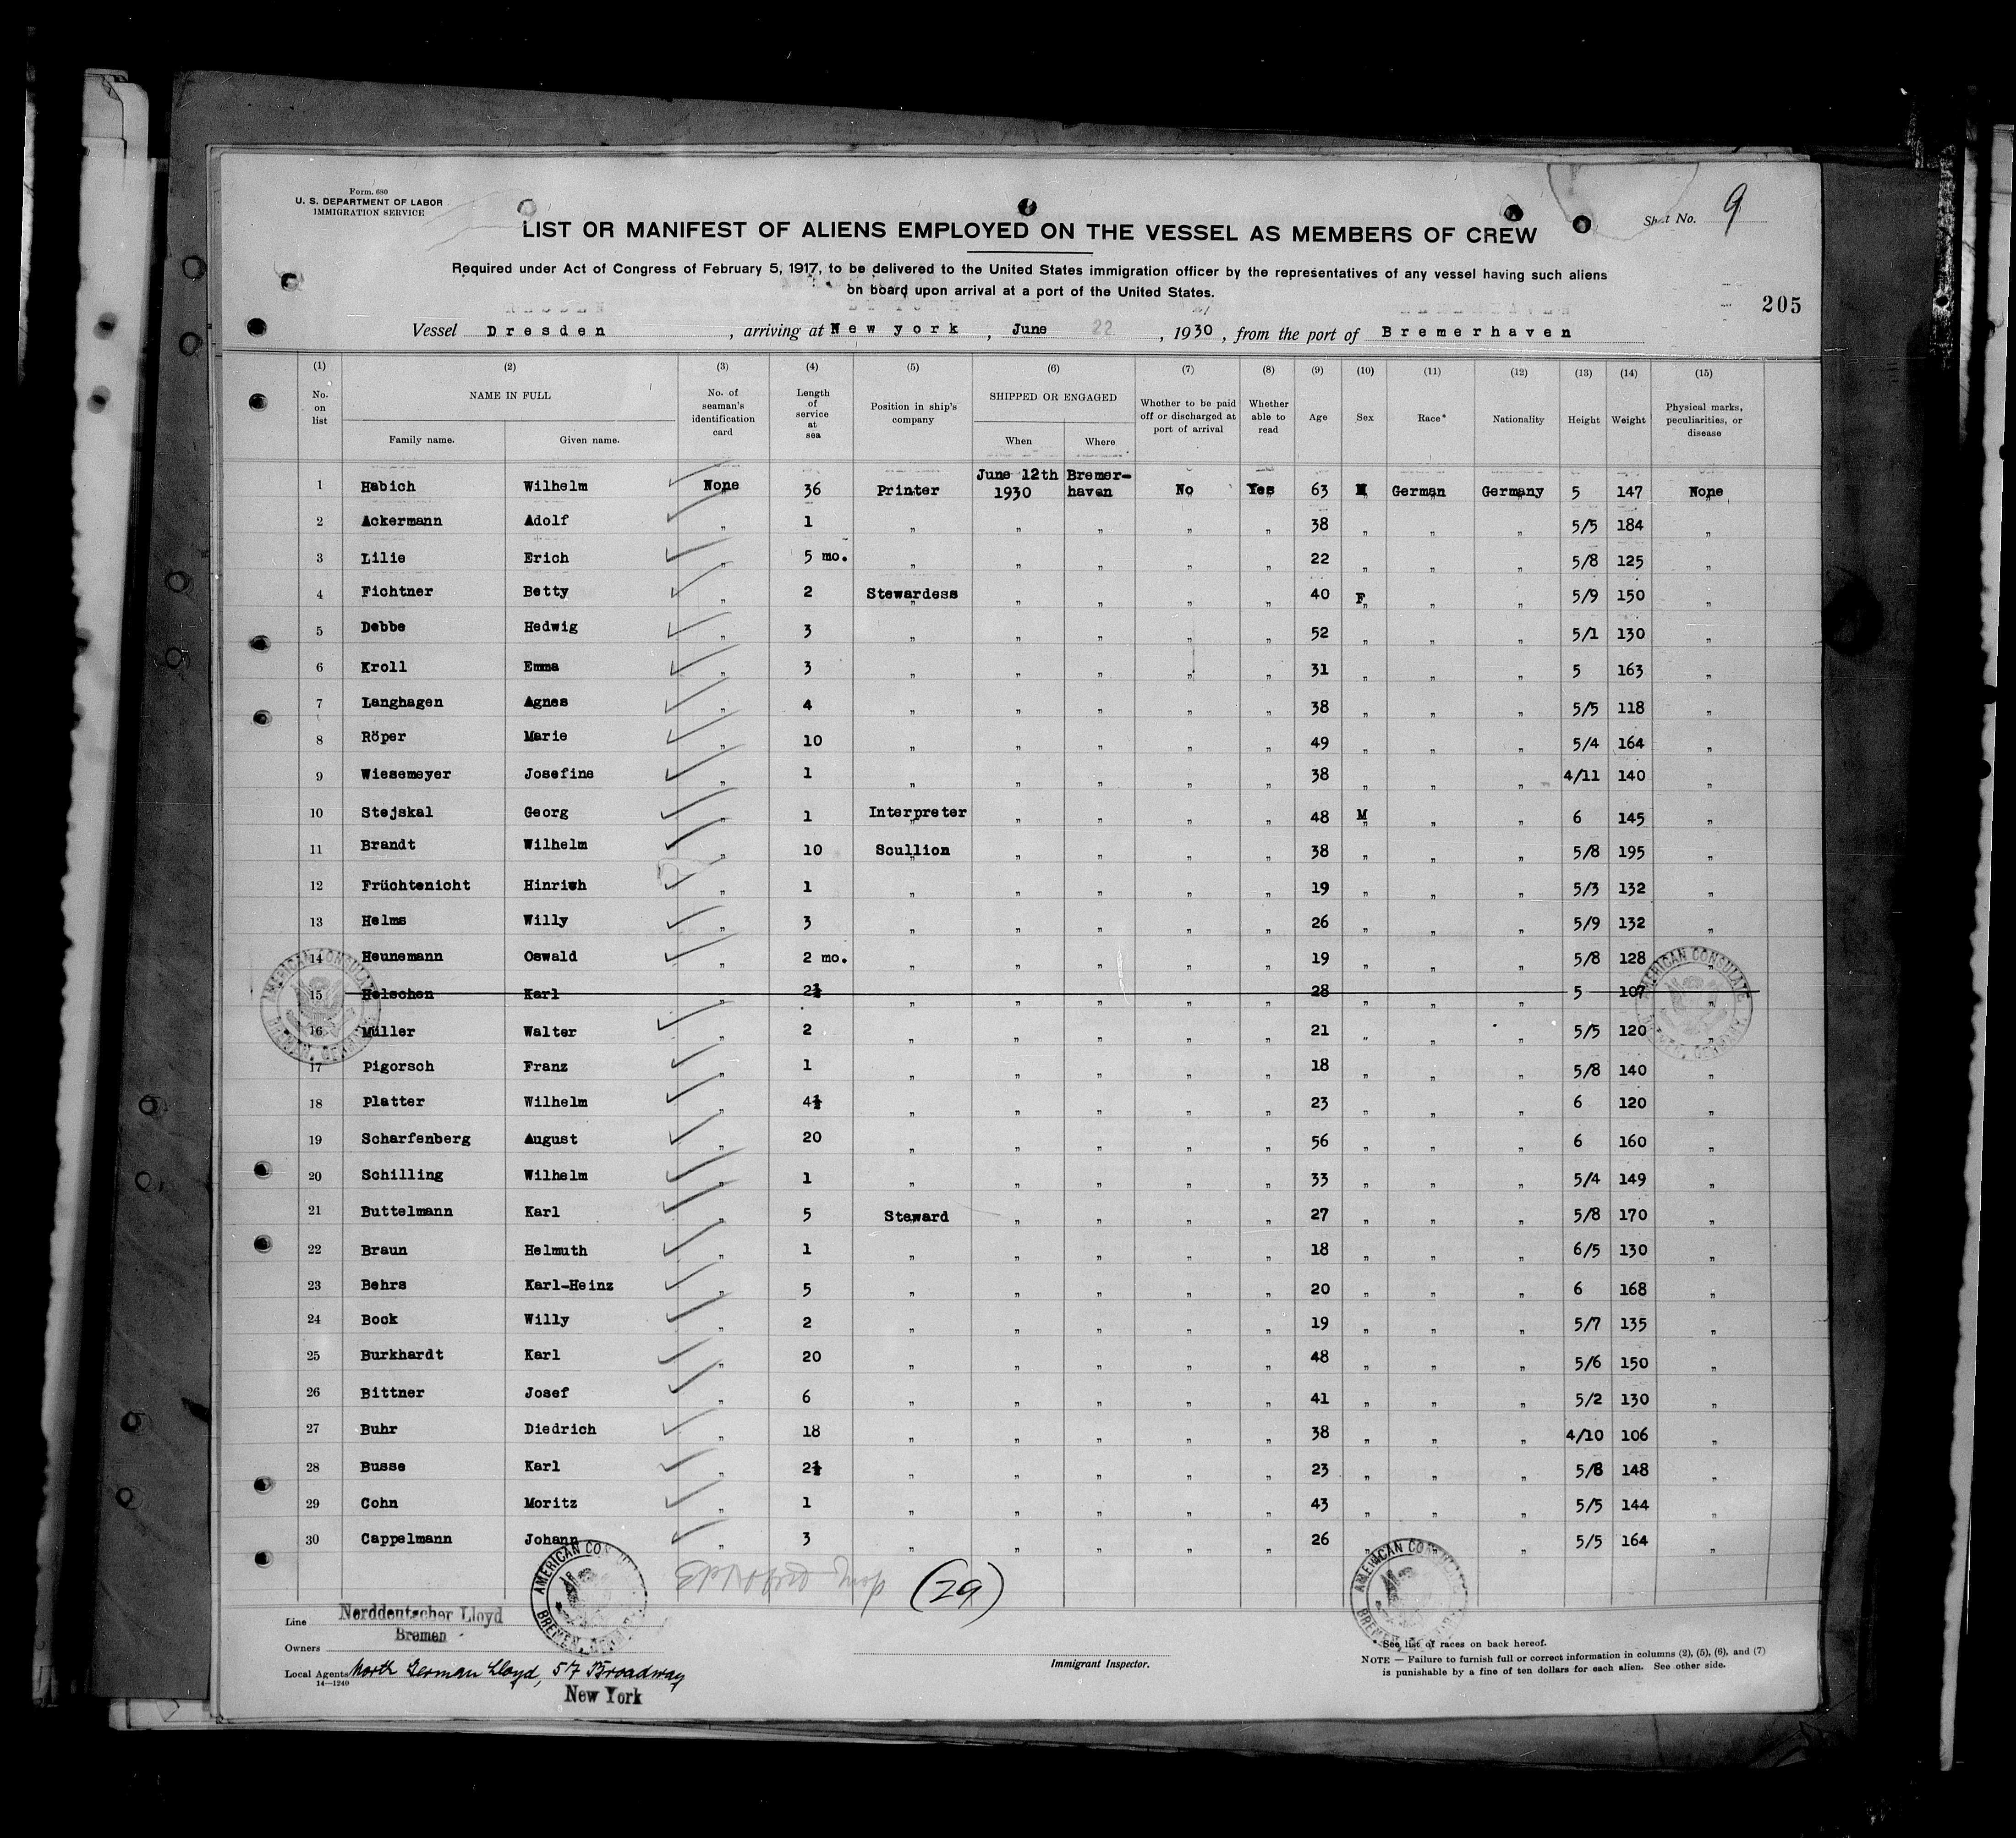 Form. 680
U. S. DEPARTMENT OF LABOR
IMMIGRATION SERVICE
Sheet No. 9
LIST OR MANIFEST OF ALIENS EMPLOYED ON THE VESSEL AS MEMBERS OF CREW
Required under Act of Congress of February 5, 1917, to be delivered to the United States immigration officer by the representatives of any vessel having such aliens
on board upon arrival at a port of the United States.
205
Vessel Dresden, arriving at New york, June 22, 1930, from the port of Bremerhaven
(1) (2) (3) (4) (5) (6) (7) (8) (9) (10) (11) (12) (13) (14) (15)
No. on list NAME IN FULL Family name. Given name. No. of seaman's identification card Length of service at sea Position in ship's company SHIPPED OR ENGAGED When Where Whether to be paid off or discharged at port of arrival Whether able to read Age Sex Race* Nationality Height Weight Physical marks, peculiarities, or disease
1 Habich Wilhelm None 36 Printer June 12th 1930 Bremer-haven No Yes 63 M German Germany 5 147 None
2 Ackermann Adolf " 1 " " " " " 38 " " " 5/5 184 "
3 Lilie Erich " 5 mo. " " " " " 22 " " " 5/8 125 "
4 Fichtner Betty " 2 Stewardess " " " " 40 F " " 5/9 150 "
5 Debbe Hedwig " 3 " " " " " 52 " " " 5/1 130 "
6 Kroll Emma " 3 " " " " " 31 " " " 5 163 "
7 Langhagen Agnes " 4 " " " " " 38 " " " 5/5 118 "
8 Röper Marie " 10 " " " " " 49 " " " 5/4 164 "
9 Wiesemeyer Josefine " 1 " " " " " 38 " " " 4/11 140 "
10 Stejskal Georg " 1 Interpreter " " " " 48 M " " 6 145 "
11 Brandt Wilhelm " 10 Scullion " " " " 38 " " " 5/8 195 "
12 Früchtenicht Hinrich " 1 " " " " " 19 " " " 5/3 132 "
13 Helms Willy " 3 " " " " " 26 " " " 5/9 132 "
14 Heunemann Oswald " 2 mo. " " " " " 19 " " " 5/8 128 "
15 Helschen Karl " 2½ " " " " " 28 " " " 5 107 "
16 Müller Walter " 2 " " " " " 21 " " " 5/5 120 "
17 Pigorsch Franz " 1 " " " " " 18 " " " 5/8 140 "
18 Platter Wilhelm " 4½ " " " " " 23 " " " 6 120 "
19 Scharfenberg August " 20 " " " " " 56 " " " 6 160 "
20 Schilling Wilhelm " 1 " " " " " 33 " " " 5/4 149 "
21 Buttelmann Karl " 5 Steward " " " " 27 " " " 5/8 170 "
22 Braun Helmuth " 1 " " " " " 18 " " " 6/5 130 "
23 Behrs Karl-Heinz " 5 " " " " " 20 " " " 6 168 "
24 Bock Willy " 2 " " " " " 19 " " " 5/7 135 "
25 Burkhardt Karl " 20 " " " " " 48 " " " 5/6 150 "
26 Bittner Josef " 6 " " " " " 41 " " " 5/2 130 "
27 Buhr Diedrich " 18 " " " " " 38 " " " 4/10 106 "
28 Busse Karl " 2½ " " " " " 23 " " " 5/8 148 "
29 Cohn Moritz " 1 " " " " " 43 " " " 5/5 144 "
30 Cappelmann Johann " 3 " " " " " 26 " " " 5/5 164 "
AMERICAN CONSULATE BREMEN, GERMANY
AMERICAN CONSULATE BREMEN, GERMANY
AMERICAN CONSULATE BREMEN, GERMANY
AMERICAN CONSULATE BREMEN, GERMANY
(29)
Line Norddeutscher Lloyd
Bremen
Owners
Local Agents North German Lloyd, 57 Broadway
14—1240
New York
Immigrant Inspector.
* See list of races on back hereof.
NOTE — Failure to furnish full or correct information in columns (2), (5), (6), and (7)
is punishable by a fine of ten dollars for each alien. See other side.